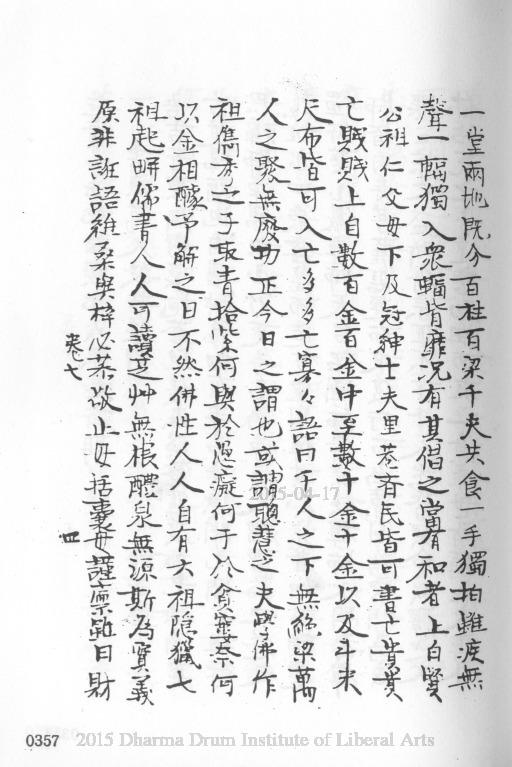 一堂兩地既分百柱百梁千夫共食一手獨拍雖疾無
聲一幅獨入衆輻皆靡況有其倡之當有和者上自賢
公祖仁父母下及冠紳士夫里巷齊民皆可書亡貴貴
亡賤賤上自數百金百金中至數十金十金以及斗米
尺布皆可入亡多多亡寡々語曰千人之下無絲梁萬
人之聚無廢功正今日之謂也或謂聰慧之夫學佛作
祖雋才之子取青拾紫何與於愚癡何于於貧窶奈何
以金相醵予解之曰不然佛性人人自有六祖隐獵七
祖起畊儒書人人可讀芝艸無根醴泉無源斯為實義
原非誑語維桑與梓必恭敬止毋括囊毋謹稟雖曰財
卷七
四
0357
2015 Dharma Drum Institute of Liberal Arts
2015-04-17